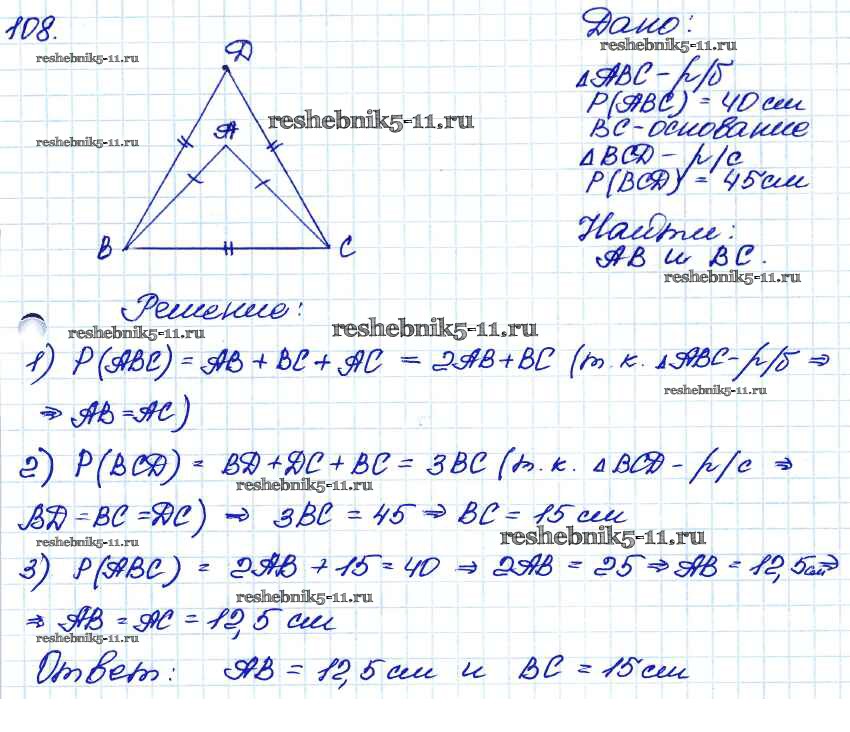 108.
reshebnik5-11.ru
D
reshebnik5-11.ru
A
reshebnik5-11.ru
B
C
Дано:
reshebnik5-11.ru
△ABC - р/б
P(ABC) = 40 см
BC - основание
△BCD - р/с
P(BCD) = 45 см
Найти:
AB и BC.
reshebnik5-11.ru
Решение:
reshebnik5-11.ru
reshebnik5-11.ru
1) P(ABC) = AB + BC + AC = 2AB + BC (т. к. △ABC - р/б ⇒
reshebnik5-11.ru
⇒ AB = AC)
2) P(BCD) = BD + DC + BC = 3BC (т. к. △BCD - р/с ⇒
reshebnik5-11.ru
BD = BC = DC) ⇒ 3BC = 45 ⇒ BC = 15 см
reshebnik5-11.ru
reshebnik5-11.ru
3) P(ABC) = 2AB + 15 = 40 ⇒ 2AB = 25 ⇒ AB = 12,5 см ⇒
reshebnik5-11.ru
⇒ AB = AC = 12,5 см
reshebnik5-11.ru
Ответ: AB = 12,5 см и BC = 15 см